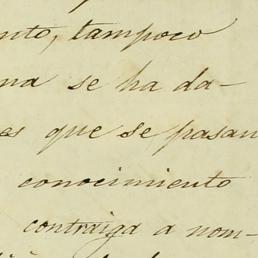 nto, tampoco
na se ha da-
es que se pasan
conocimiento
contraiga a nom-